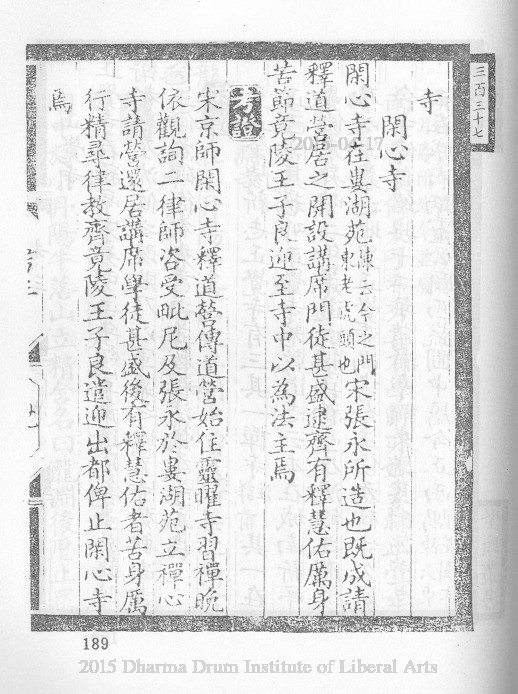 三百三十七
寺
閑心寺
閑心寺在婁湖苑陳云今之門東老虎頭也宋張永所造也既成請
釋道營居之開設講席門徒甚盛逮齊有釋慧佑厲身
苦節竟陵王子良迎至寺中以為法主焉
考證
宋京師閑心寺釋道營傳道營始住靈曜寺習禪晚
依觀詢二律師咨受毗尼及張永於婁湖苑立禪心
寺請營還居講席學徒甚盛後有釋慧佑者苦身厲
行精尋律教齊竟陵王子良遣迎出都俾止閑心寺
焉
189
2015 Dharma Drum Institute of Liberal Arts